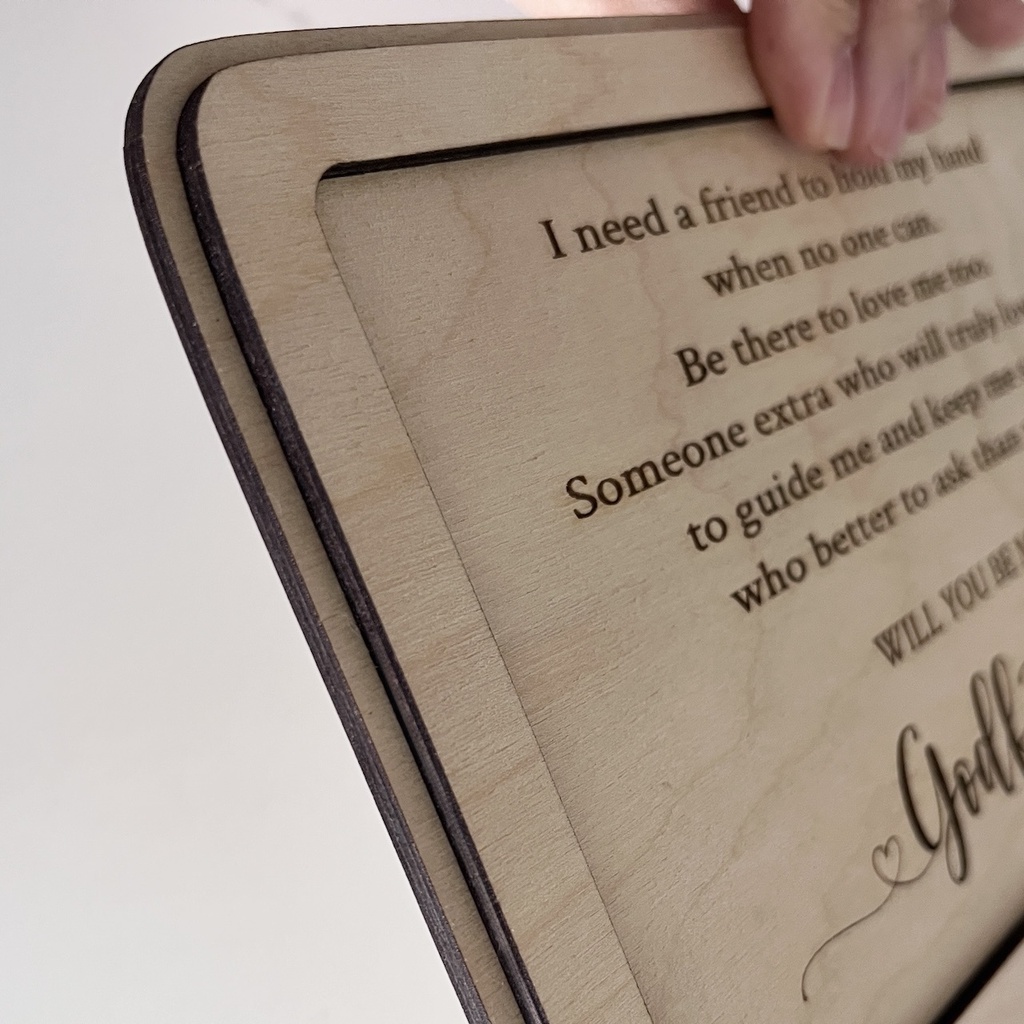 I need a friend to hold my hand
when no one can.
Be there to love me too.
Someone extra who will truly
to guide me and keep me
who better to ask than
WILL YOU BE